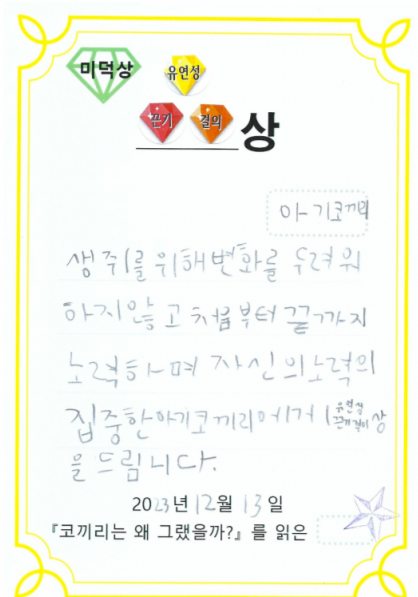 미덕상
유연성
끈기 결의 상
아기코끼리
생쥐를위해변화를 두려워
하지않고 처음부터 끝까지
노력하며 자신의노력의
집중한아기코끼리에게 유연성
끈기결의 상
을드립니다.
2023년 12월 13일
『코끼리는 왜 그랬을까?』를 읽은